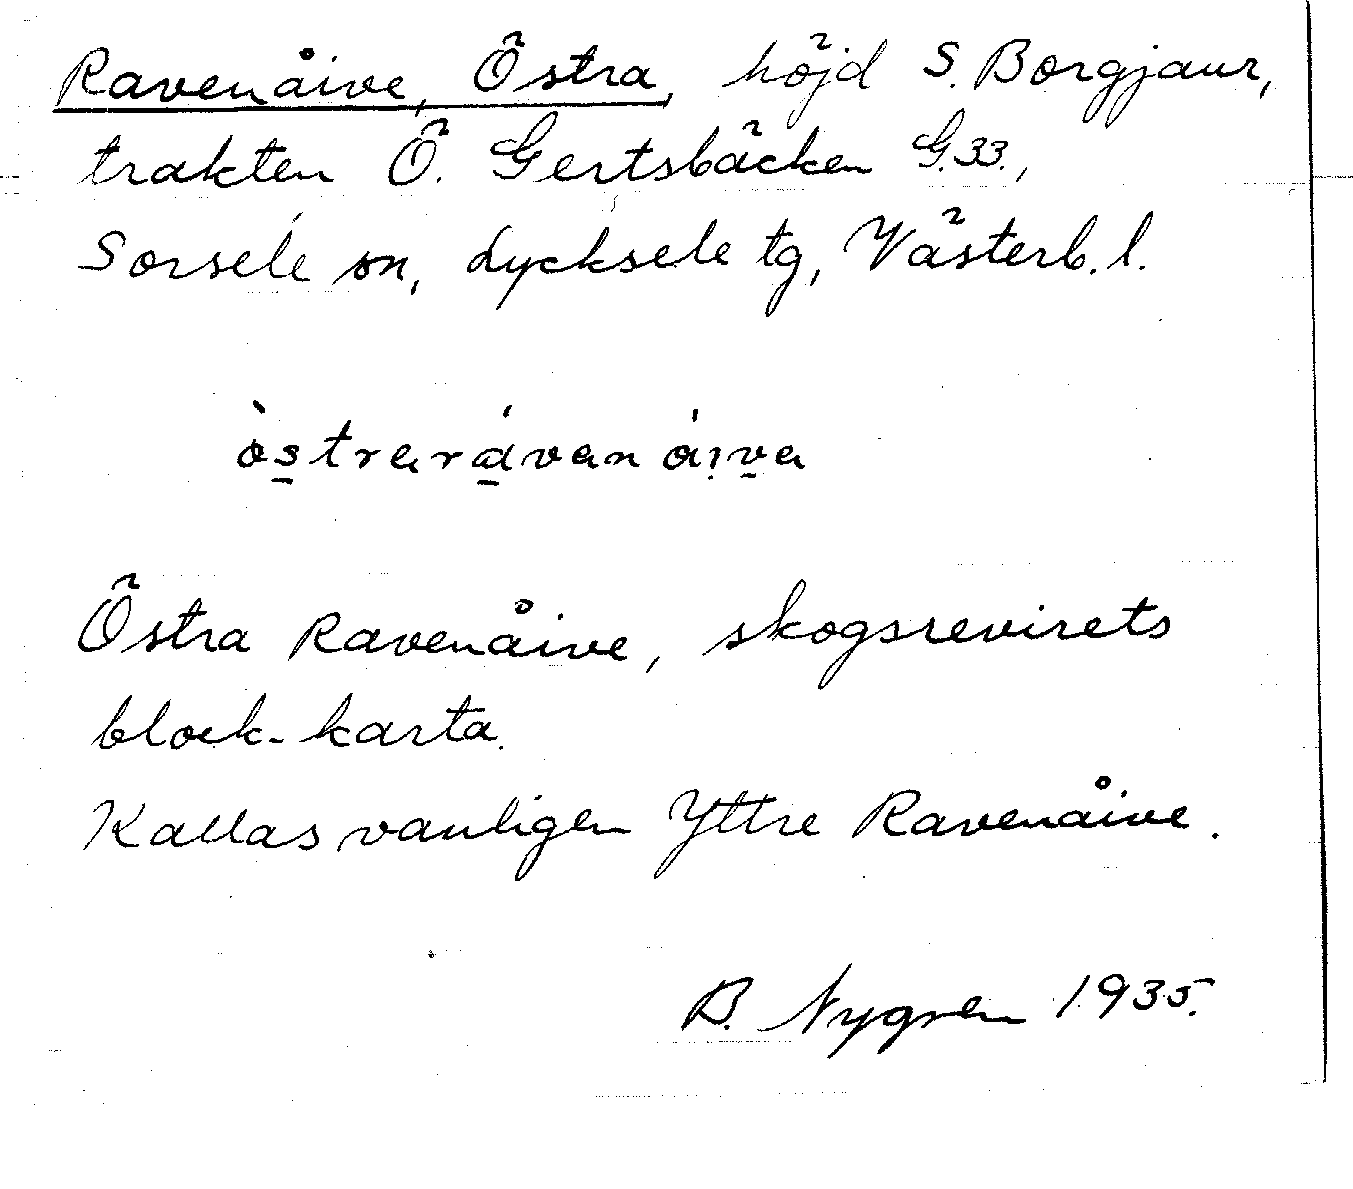 Ravenåive, Östra, höjd S. Borgjaur,
trakten Ö. Gertsbäcken G.33.,
Sorsele sn, Lycksele tg, Västerb. l.
Östra Ravenåive, skogsrevirets
block-karta.
Kallas vanligen Yttre Ravenåive.
B. Nygren 1935.